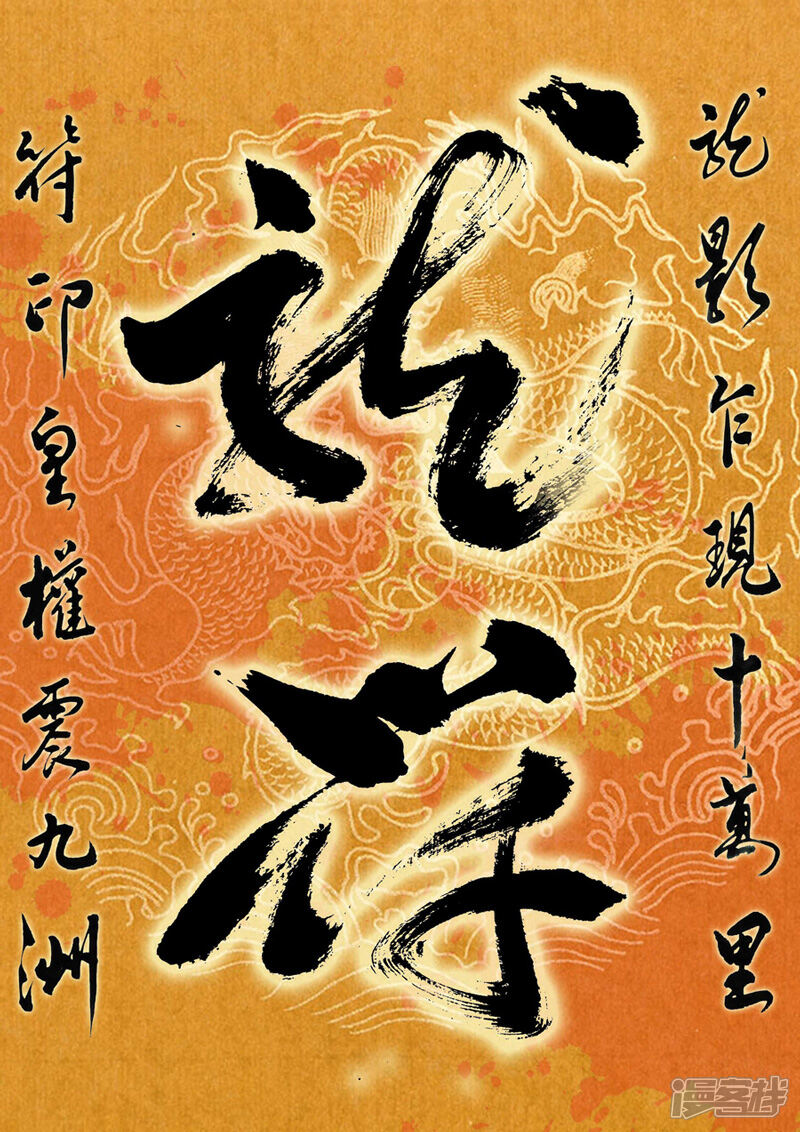 龍影乍現十萬里
龍符
符印皇權震九洲
漫客栈